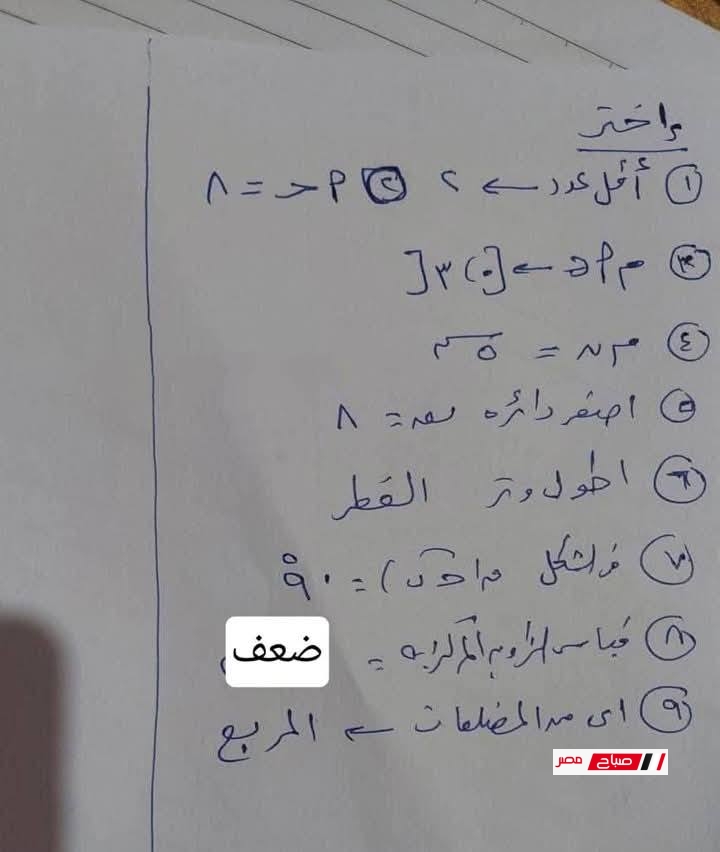 إختر
① أقل عدد ← ٢ ② أ ح = ٨
③ م أ ∋ [٠، ٣[
④ م ن = √٥
⑤ اصغر دائره نوه = ٨
⑥ اطول وتر القطر
⑦ فى الشكل = ٩٠°
⑧ قياس الزاويه المركزيه = ضعف
⑨ اى من المضلعات ← المربع
صباح مصر